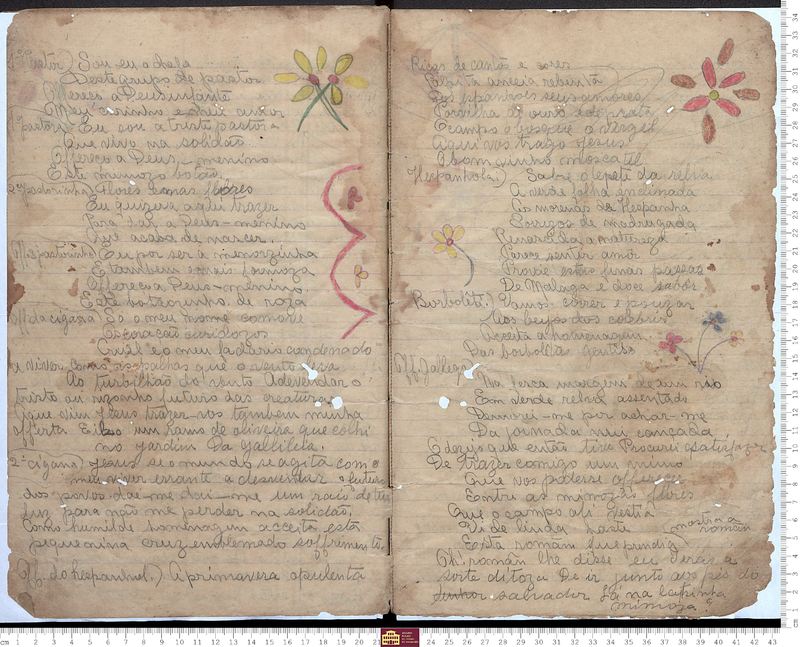 1º Pastor) Sou eu o chefe
Deste grupo de pastor
Offereço a Deus infante
Meu carinho e meu amor
Pastora) Eu sou a triste pastora
Que vivo na solidão
Offereço a Deus-menino
Este mimozo botão.
2ª pastorinha) Flores e mas flores
Eu quizera aqui trazer
Para dar a Deus-menino
Que acaba de nascer.
pastorinha) Eu por ser a menorzinha
E tambem a mais formoza
Offereço a Deus-menino
Este botãozinho de roza
Off. da cigana) So o meu nome comove
Os coração
Cruel é o meu fadario condenado
a viver como as palhas que o vento leva
Ao turbilhão do vento Adevendar o
tristo ou rizonho futuro das creaturas
que vim Jesus trazer-vos tambem minha
offerta Eil-o um Ramo de oliveira que colhi
no jardim Da Gallileia.
2ª cigana) Jesus se o mundo se agita com o
meu viver errante a desvendar o futuro
dos povos dae-me dai-me um raio de tua
luz para não me perder na solidão.
Como humilde homenagem acceita esta
pequenina cruz emblemado soffrimento.
Off. do hespanhol.) A primavera opulenta
Ricas de cantos e cores
rebenta
Os espanhóes seus amores
de ouro e de prata
O campo o bosque o vergel
Aqui vos trago Jesus
A bom vinho moscatel
Hespanhola.) Sobre o tapete da relva
A verde folha
As morenas da Hespanha
Sorrizos de madrugada
a natureza
Parece sentir amor
Provae estas finas passas
De Malaga e doce sabor
Borboleta.) Vamos correr e pouzar
Aos beijos dos colibris
Acceita a homenagem
Das borboletas gentis
Off. Gallego
Na fresca margem de um rio
Em verde relva assentado
Demorei-me por achar-me
Da jornada mui cançada
O dezejo que então tive Procurei satisfazer
De trazer comigo um mimo
Que vos podesse offerecer
Entre as mimozas flores
Que o campo ali vestia
Vi de linda haste (mostra a roman)
Esta romãn que prendia
Oh! romãn lhe disse eu terás a
sorte ditoza De ir junto aos pés do
Senhor salvador Lá na lapinha
mimoza